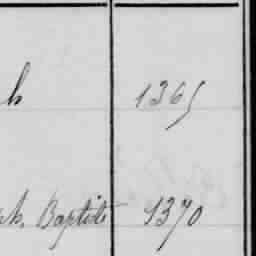 h 1365
ch. Baptiste 1370